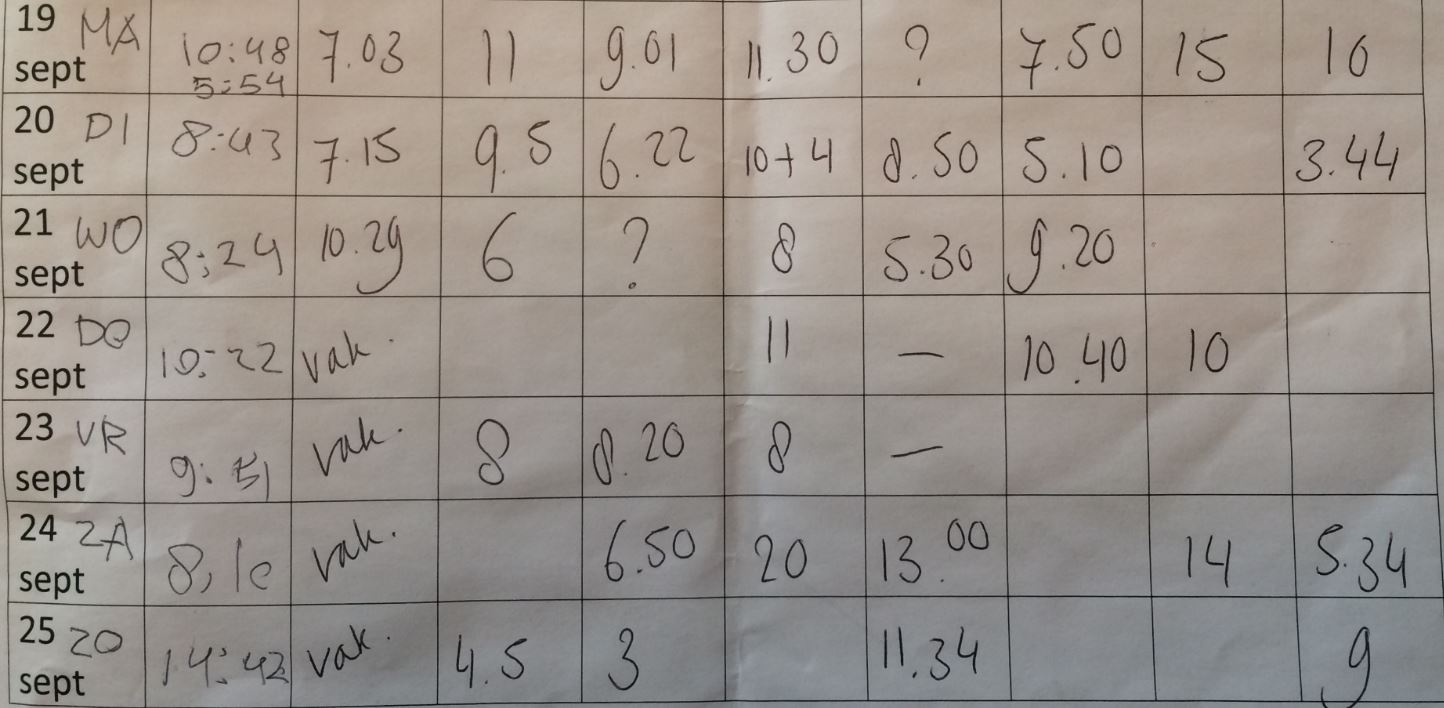 19 MA 10:48 7.03 11 9.01 11.30 ? 7.50 15 10
sept 5:54
20 DI 8:43 7.15 9.5 6.22 10+4 8.50 5.10 3.44
sept
21 WO 8:24 10.29 6 ? 8 5.30 9.20
sept
22 DO 10:22 vak. 11 — 10.40 10
sept
23 VR 9:51 vak. 8 8.20 8 —
sept
24 ZA vak. 6.50 20 13.00 14 5.34
sept
25 ZO 14:42 vak. 4.5 3 11.34 9
sept